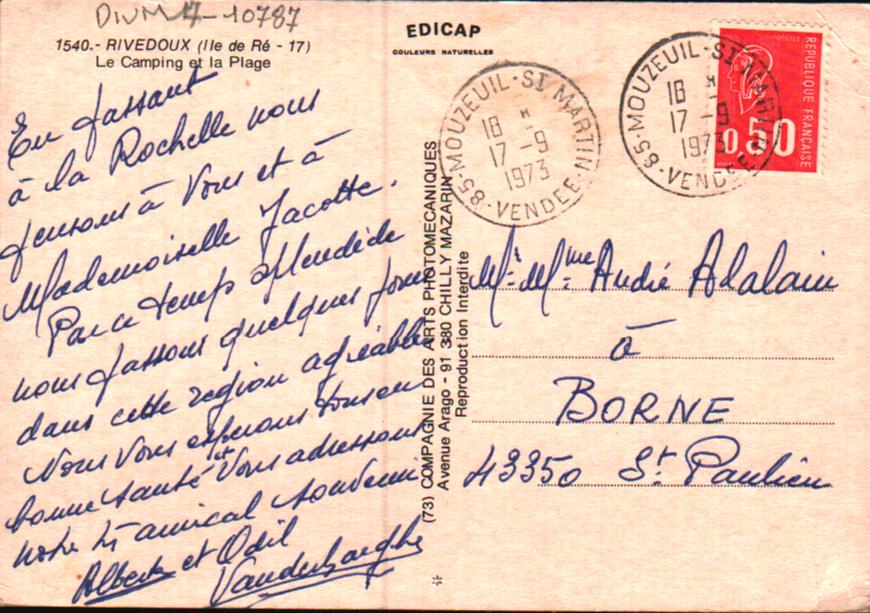 DIVM 17-10787
1540.- RIVEDOUX (Ile de Ré - 17)
Le Camping et la Plage
EDICAP
COULEURS NATURELLES
En passant
à la Rochelle nous
pensons à Vous et à
Mademoiselle Jacotte.
Par ce temps splendide
nous passons quelques jours
dans cette région agréable
Nous Vous espérons tous en
bonne santé et Vous adressons
notre très amical souvenir
Albert et Odil
(73) COMPAGNIE DES ARTS PHOTOMECANIQUES
Avenue Arago - 91 380 CHILLY MAZARIN
Reproduction Interdite
85-MOUZEUIL-ST MARTIN
18 H
17 -9
1973
VENDEE
85-MOUZEUIL-ST MARTIN
18 H
17 -9
1973
VENDEE
POSTES
REPUBLIQUE FRANÇAISE
0,50
Mr. Mme André Adalain
à
BORNE
43350 St Paulien